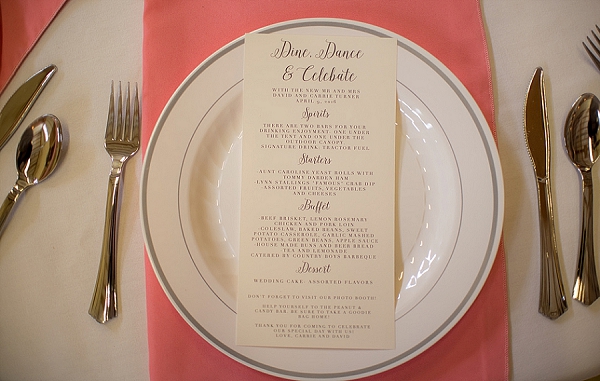 Dine, Dance
& Celebate
WITH THE NEW MR AND MRS
DAVID AND CARRIE TERNER
APRIL 9, 2018
Spirits
THERE ARE TWO BARS FOR YOUR
DRINKING ENJOYMENT: ONE UNDER
THE TENT AND ONE UNDER THE
OUTDOOR CANOPY
SIGNATURE DRINK: TRACTOR FUEL
Starters
AUNT CAROLINE YEAST ROLLS WITH
TOMMY DARDEN HAM
LYNN STALLINGS "FAMOUS" CRAB DIP
ASSORTED FRUITS, VEGETABLES
AND CHEESES
Buffet
BEEF BRISKET, LEMON ROSEMARY
CHICKEN AND PORK LOIN
COLESLAW, BAKED BEANS, SWEET
POTATO CASSEROLE, GARLIC MASHED
POTATOES, GREEN BEANS, APPLE SAUCE
HOUSE MADE BUNS AND BEER BREAD
TEA AND LEMONADE
CATERED BY COUNTRY BOYS BARBEQUE
Dessert
WEDDING CAKE: ASSORTED FLAVORS
DON'T FORGET TO VISIT OUR PHOTO BOOTH!
HELP YOURSELF TO THE PEANUT &
CANDY BAR. BE SURE TO TAKE A GOODIE
BAG HOME!
THANK YOU FOR COMING TO CELEBRATE
OUR SPECIAL DAY WITH US!
LOVE, CARRIE AND DAVID